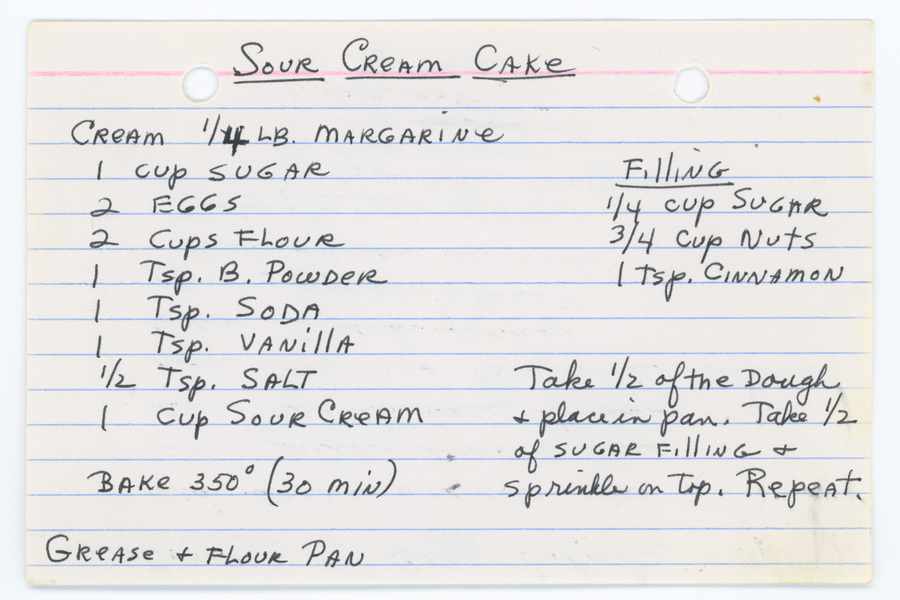 Sour Cream Cake
Cream 1/4 LB. Margarine
1 cup Sugar
2 Eggs
2 Cups Flour
1 Tsp. B. Powder
1 Tsp. Soda
1 Tsp. Vanilla
1/2 Tsp. Salt
1 Cup Sour Cream
Bake 350° (30 min)
Grease + Flour Pan
Filling
1/4 cup Sugar
3/4 Cup Nuts
1 Tsp. Cinnamon
Take 1/2 of the Dough
+ place in pan. Take 1/2
of sugar filling +
sprinkle on top. Repeat.